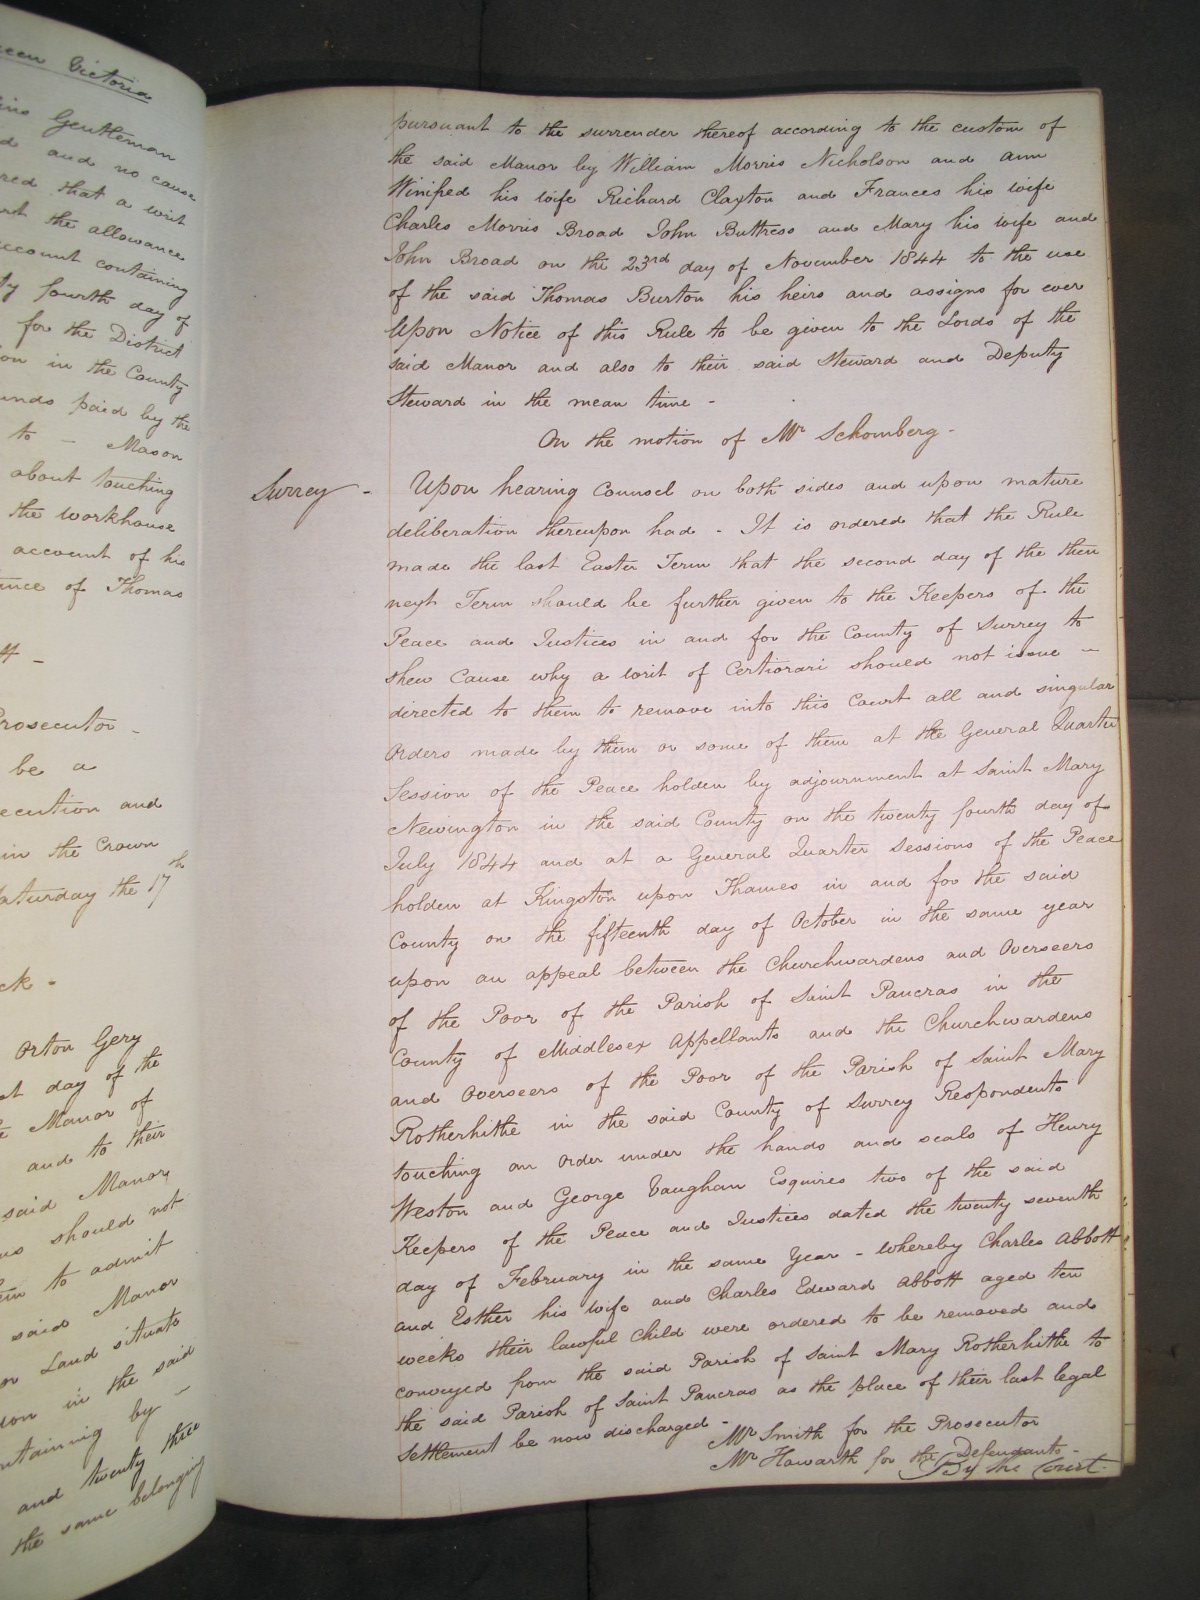 een Victoria
ins Gentleman
d and no cause
red that a writ
nt the allowance
ccount containing
ty fourth day of
for the District
on in the County
unds paid by the
to - Mason
about touching
the workhouse
account of his
ance of Thomas
tt -
Prosecutor -
be a
ecution and
in the Crown
aturday the 17th
ck -
Orton Gery
st day of the
e Manor of
and to their
said Manor
ns should not
em to admit
said Manor
or Land situate
don in the said
ntaining by -
and twenty three
the same belonging
pursuant to the surrender thereof according to the custom of
the said Manor by William Morris Nicholson and Ann
Winifred his wife Richard Claxton and Frances his wife
Charles Morris Broad John Buttress and Mary his wife and
John Broad on the 23rd day of November 1844 to the use
of the said Thomas Burton his heirs and assigns for ever
Upon Notice of this Rule to be given to the Lords of the
said Manor and also to their said Steward and Deputy
Steward in the mean time -
On the motion of Mr Schomberg -
Surrey - Upon hearing Counsel on both sides and upon mature
deliberation thereupon had - It is ordered that the Rule
made the last Easter Term that the second day of the then
next Term should be further given to the Keepers of the
Peace and Justices in and for the County of Surrey to
shew Cause why a writ of Certiorari should not issue -
directed to them to remove into this Court all and singular
Orders made by them or some of them at the General Quarter
Session of the Peace holden by adjournment at Saint Mary
Newington in the said County on the twenty fourth day of
July 1844 and at a General Quarter Sessions of the Peace
holden at Kingston upon Thames in and for the said
County on the fifteenth day of October in the same year
upon an appeal between the Churchwardens and Overseers
of the Poor of the Parish of Saint Pancras in the
County of Middlesex Appellants and the Churchwardens
and Overseers of the Poor of the Parish of Saint Mary
Rotherhithe in the said County of Surrey Respondents
touching an Order under the hands and seals of Henry
Weston and George Vaughan Esquires two of the said
Keepers of the Peace and Justices dated the twenty seventh
day of February in the same Year - whereby Charles Abbott
and Esther his wife and Charles Edward Abbott aged ten
weeks their lawful Child were ordered to be removed and
conveyed from the said Parish of Saint Mary Rotherhithe to
the said Parish of Saint Pancras as the place of their last legal
Settlement be now discharged -
Mr Smith for the Prosecutor
Mr Howarth for the Defendants -
By the Court.